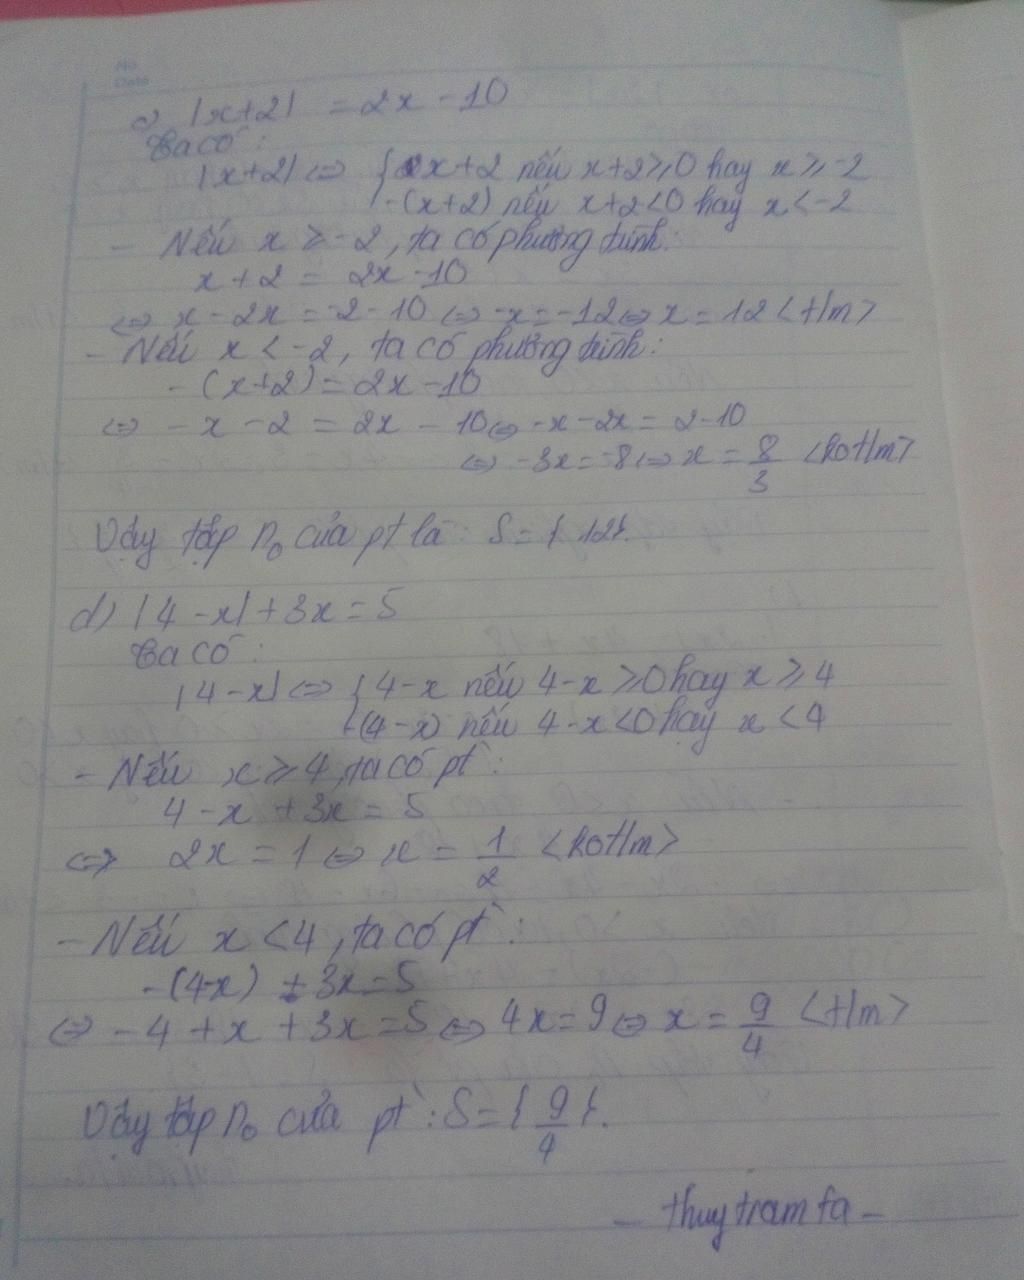 No.
Date
c) |x+2| = 2x - 10
Ta có:
|x+2| ⇔ { x+2 nếu x+2≥0 hay x ≥ -2
-(x+2) nếu x+2<0 hay x < -2
- Nếu x ≥ -2, ta có phương trình:
x + 2 = 2x - 10
⇔ x - 2x = -2 - 10 ⇔ -x = -12 ⇔ x = 12 <t/m>
- Nếu x < -2, ta có phương trình:
- (x+2) = 2x - 10
⇔ - x - 2 = 2x - 10 ⇔ -x - 2x = 2 - 10
⇔ -3x = -8 ⇔ x = 8/3 <ko t/m>
Vậy tập no của pt là: S = {12}.
d) |4 - x| + 3x = 5
Ta có:
|4-x| ⇔ { 4-x nếu 4-x ≥0 hay x ≥ 4
-(4-x) nếu 4-x<0 hay x < 4
- Nếu x ≥ 4, ta có pt:
4 - x + 3x = 5
⇔ 2x = 1 ⇔ x = 1/2 <ko t/m>
- Nếu x < 4, ta có pt:
-(4-x) + 3x = 5
⇔ - 4 + x + 3x = 5 ⇔ 4x = 9 ⇔ x = 9/4 <t/m>
Vậy tập no của pt: S = {9/4}.
- thuytramfa -